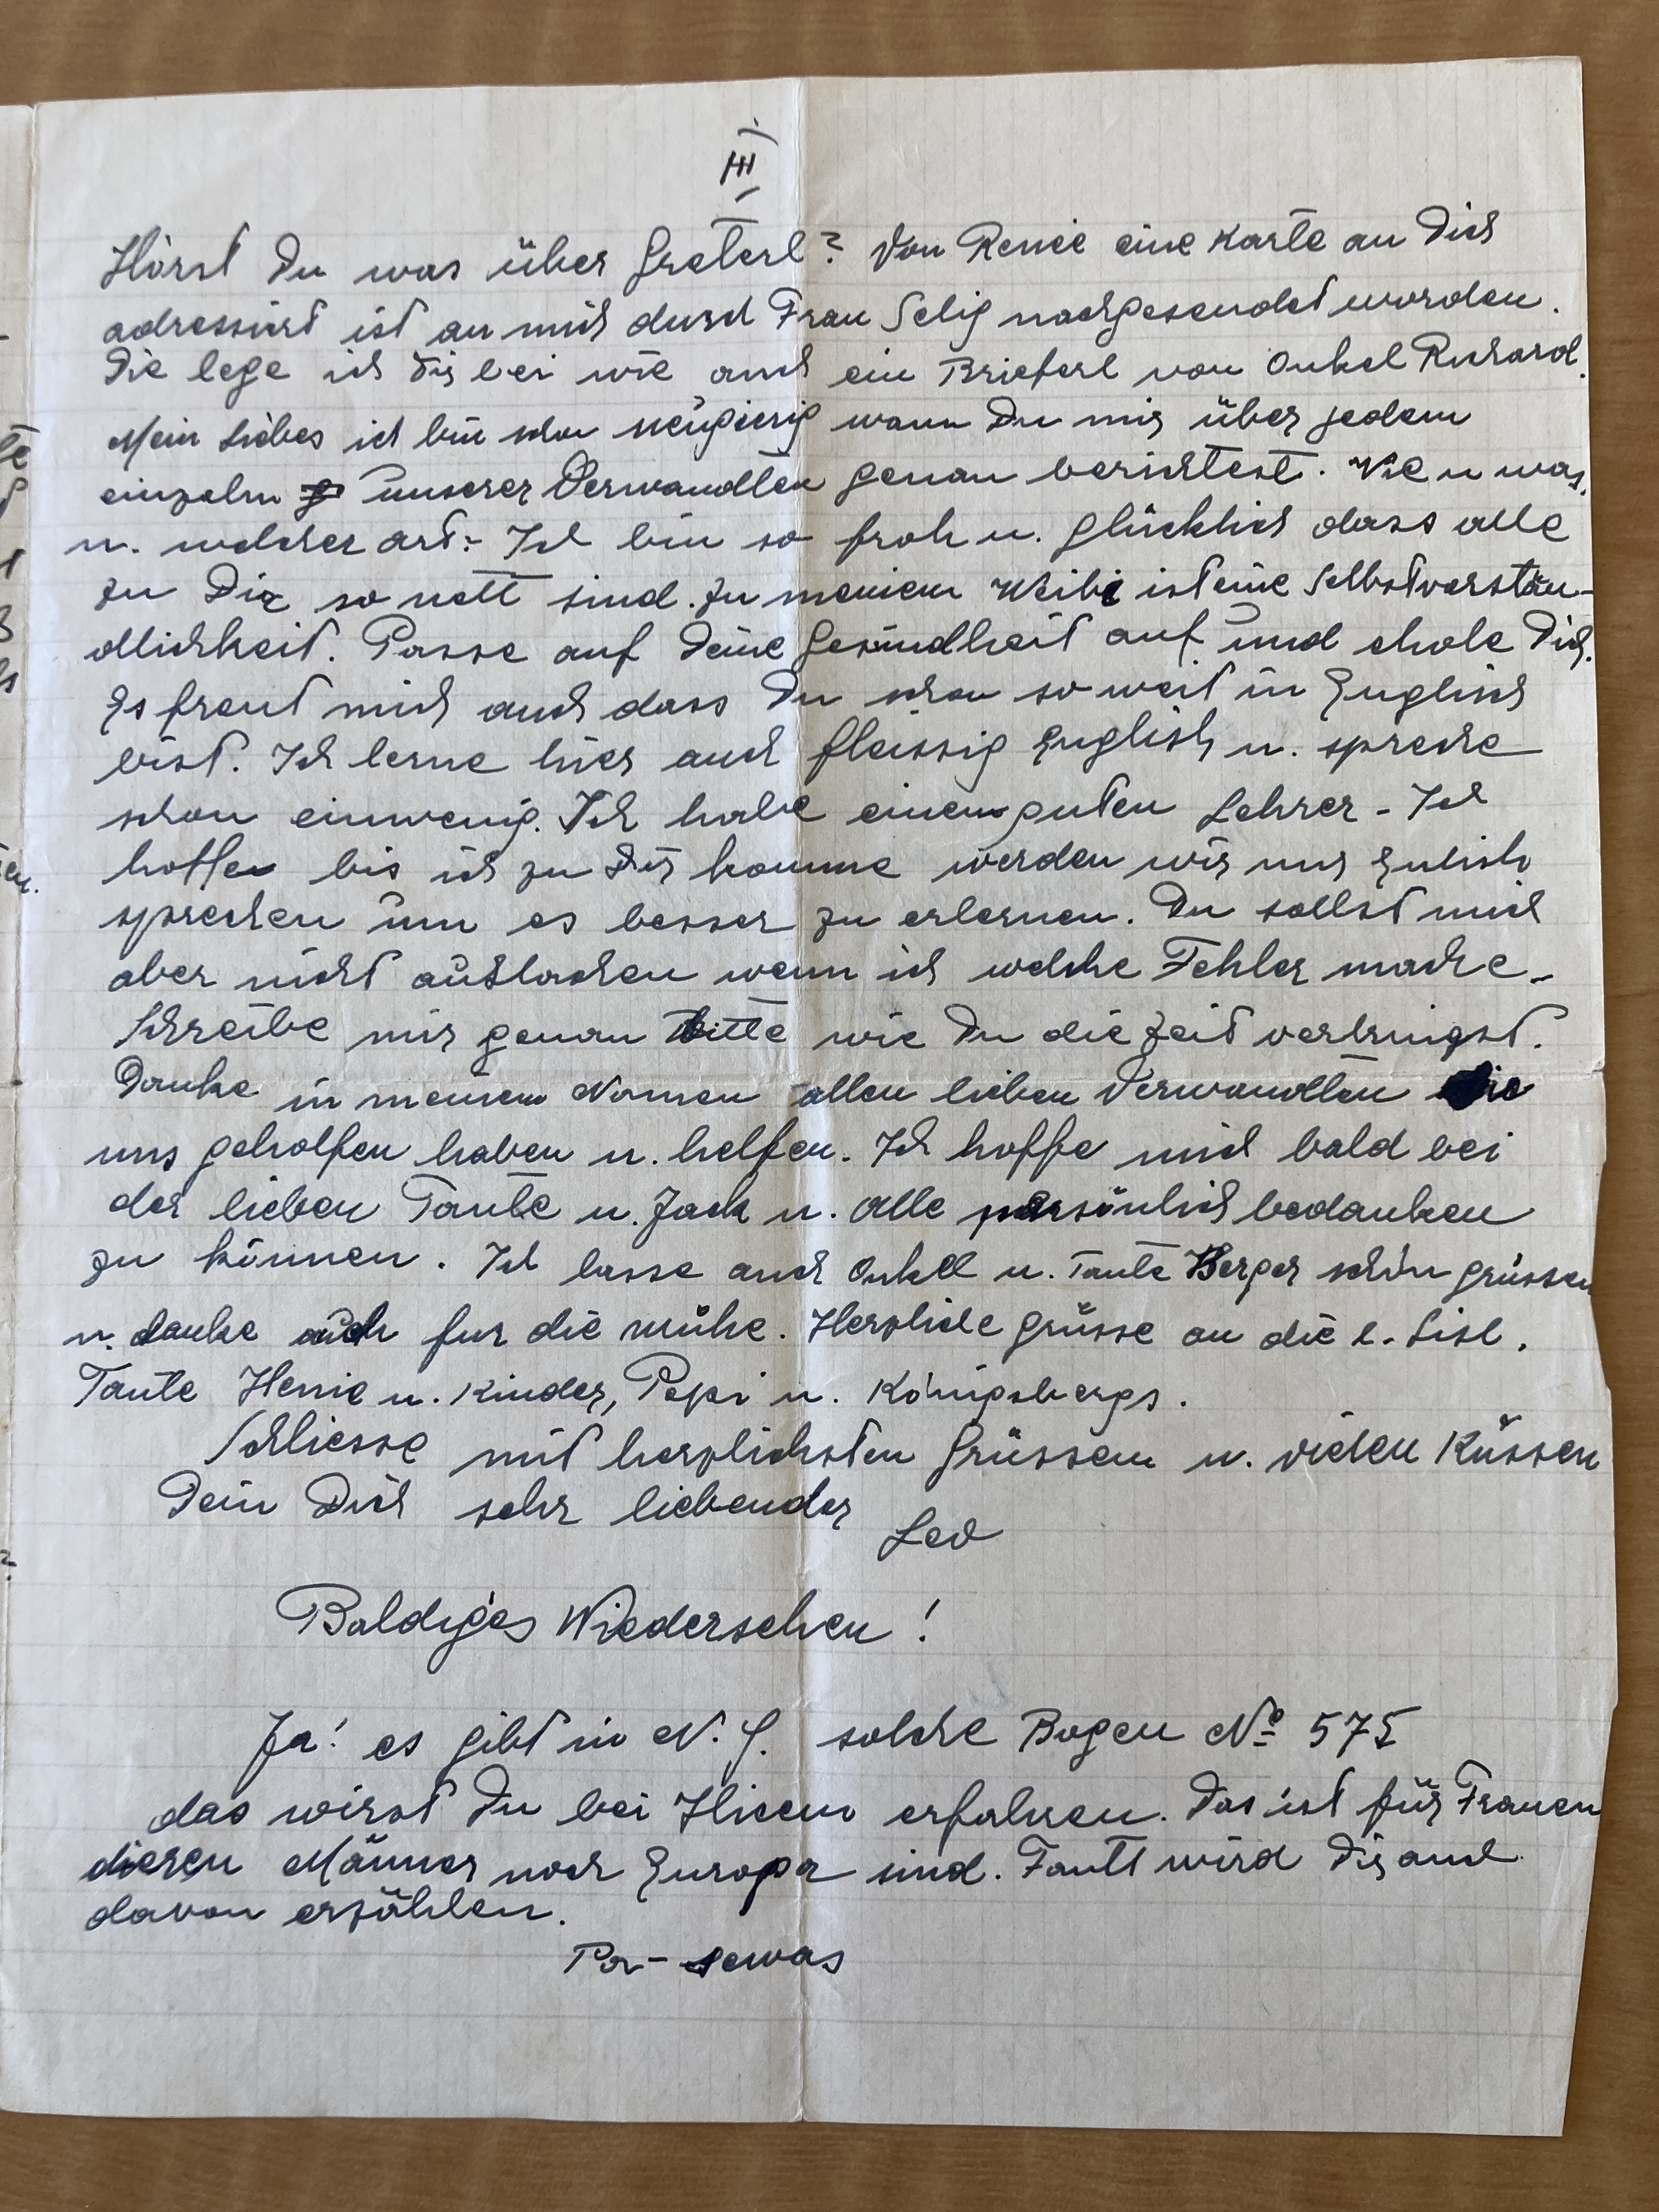 III
Hörst Du was über Greterl? Von Renée eine Karte an Dich
adressiert ist an mich durch Frau Selig nachgesendet worden.
Die lege ich Dir bei wie auch ein Brieferl von Onkel Richard.
Mein Liebes ich bin schon neugierig wann Du mir über jedem
einzeln unserer Verwandten genau berichtest. Wie u was.
u. welcher art:- Ich bin so froh u. glücklich dass alle
zu Dir so nett sind. Zu meinem Weibi ist eine Selbstverstän-
dlichkeit. Passe auf Deine Gesundheit auf und ehole Dich.
Es freut mich auch dass Du schon so weit in Englisch
bist. Ich lerne hier auch fleissig Englisch u. spreche
schon einwenig. Ich habe einen guten Lehrer - Ich
hoffe bis ich zu Dir komme werden wir nur Enlish
sprechen um es besser zu erlernen. Du sollst mich
aber nicht auslachen wenn ich welche Fehler mache.-
Schreibe mir genau bitte wie Du die Zeit verbringst.
Danke in meinem Namen allen lieben Verwandten die
uns geholfen haben u. helfen. Ich hoffe mich bald bei
der lieben Tante u. Jack u. alle persönlich bedanken
zu können. Ich lasse auch Onkell u. Tante Berger schön grüssen
u. danke auch fur die mühe. Herzliche Grüsse an die l. Lisl.
Tante Henie u. Kinder, Pepi u. Königsbergs.
Schliesse mit herzlichsten Grüssen u. vielen Küssen
Dein Dich sehr liebender
Leo
Baldiges Wiedersehen!
Ja! es gibt in N. Y. solche Bogen No 575
das wirst Du bei Hicem erfahren. Das ist für Frauen
dieren Männer noch Europa sind. Tantt wird Dir auch
davon erzählen.